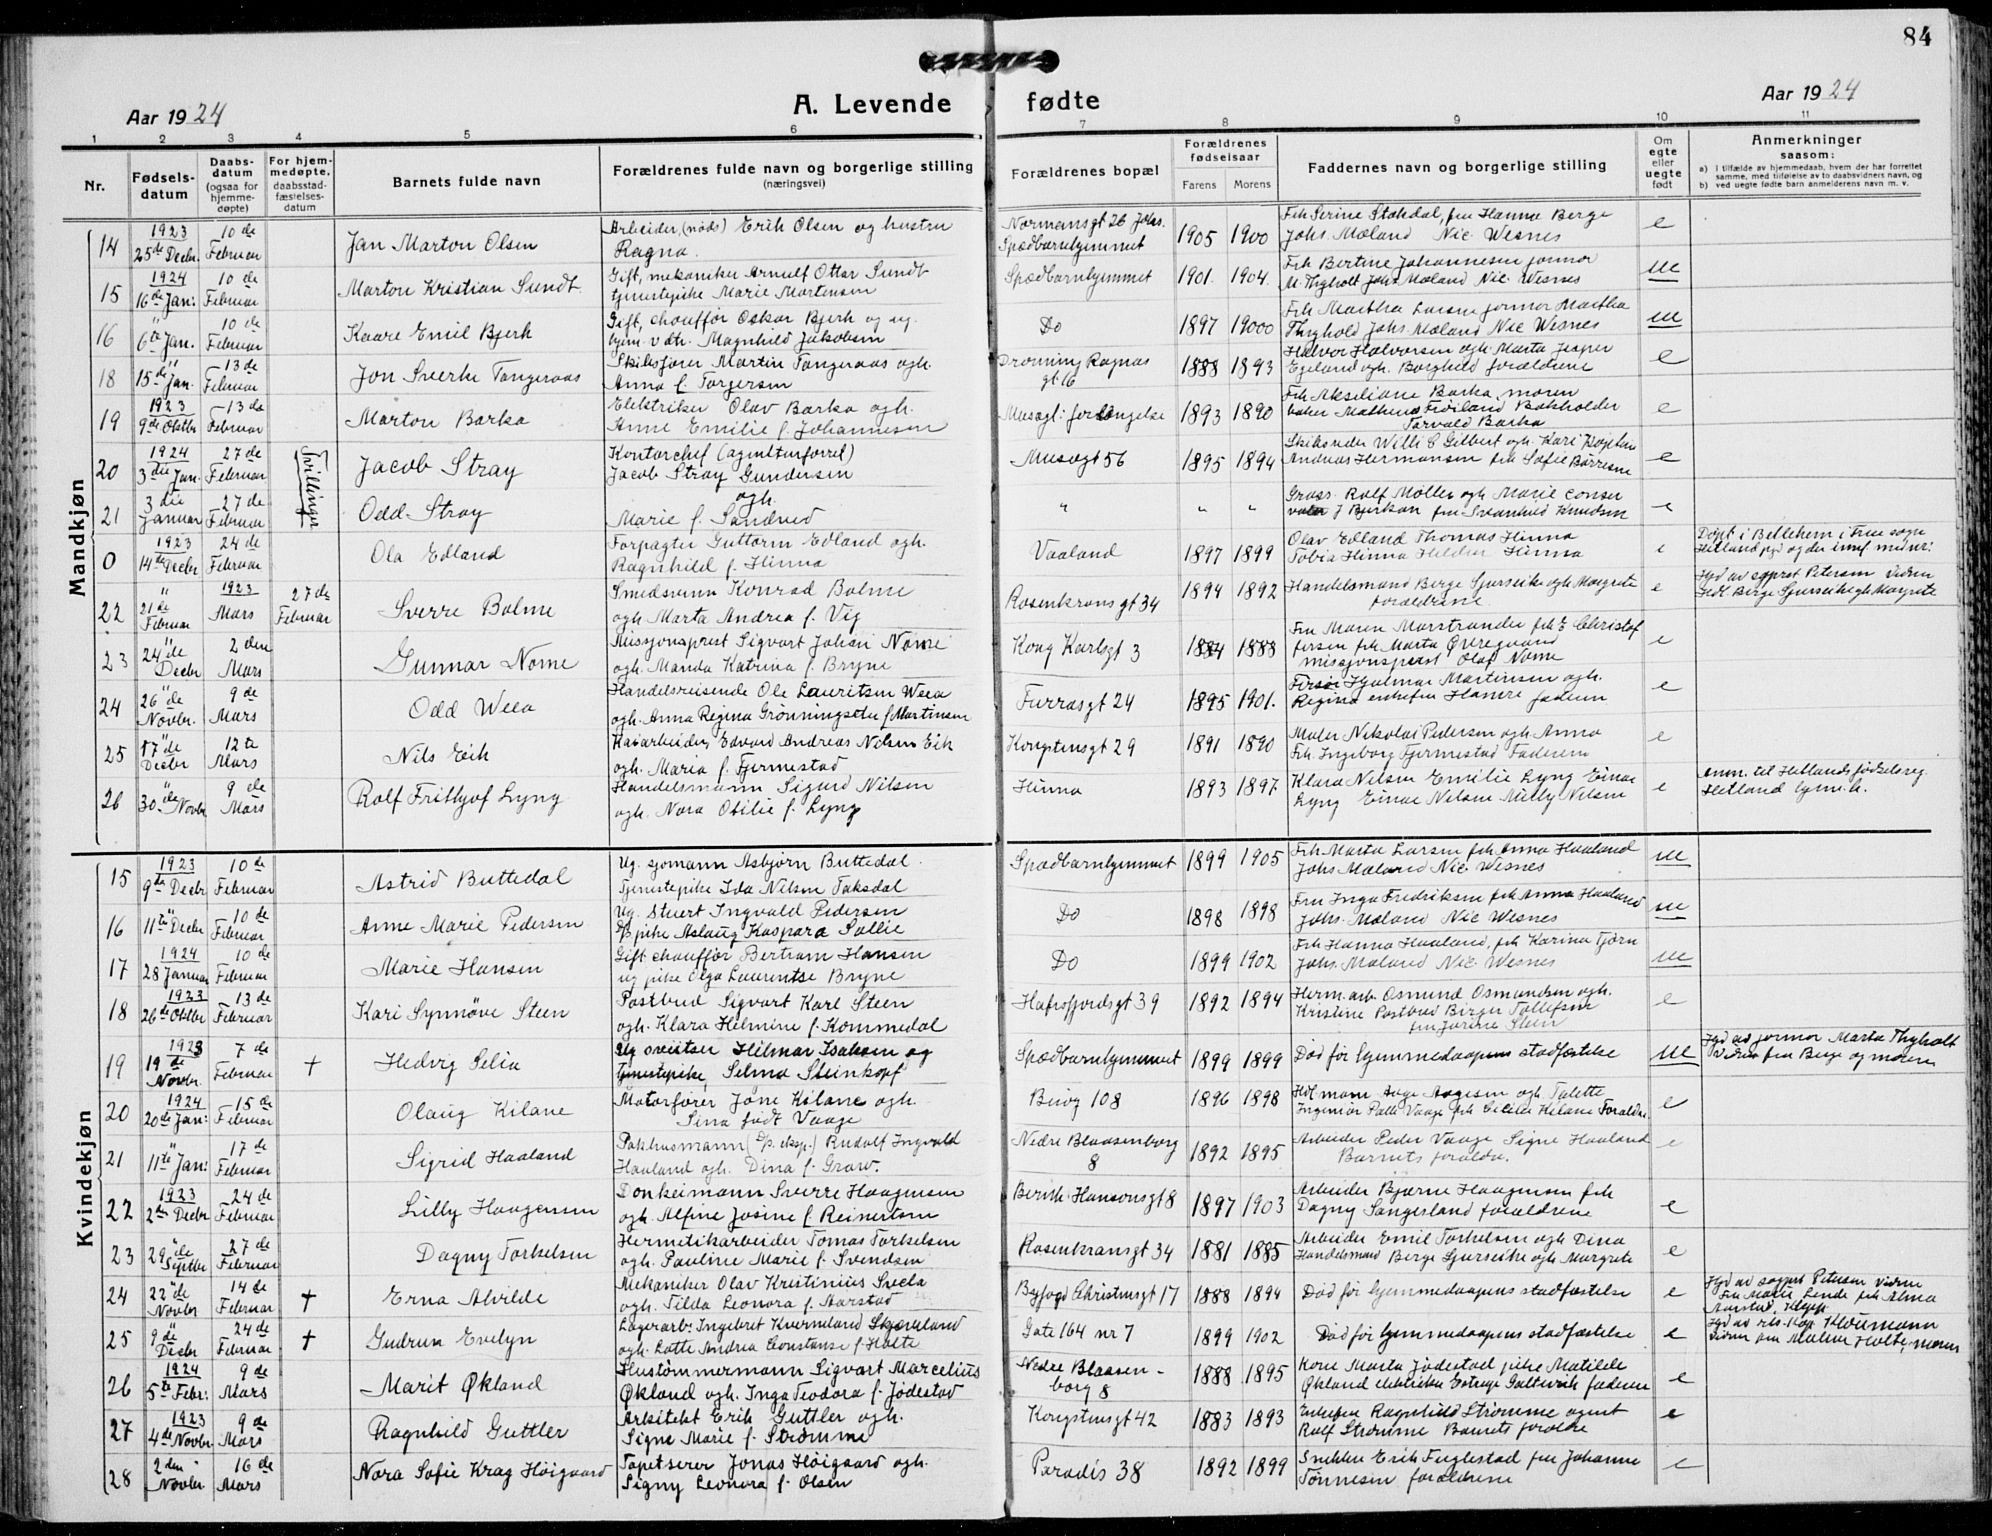 84
Aar 1924
A. Levende fødte
Aar 1924
1 2 3 4 5 6 7 8 9 10 11
Nr.
Fødsels-
datum
Daabs-
datum
(ogsaa for
hjemme-
døpte)
For hjem-
medøpte.
daabsstad-
fæstelses-
datum
Barnets fulde navn
Forældrenes fulde navn og borgerlige stilling
(næringsvei)
Forældrenes bopæl
Forældrenes
fødselsaar
Farens Morens
Faddernes navn og borgerlige stilling
Om
egte
eller
uegte
født
Anmerkninger
saasom:
a) I tilfælde av hjemmedaab, hvem der har forrettet
samme, med tilføielse av to daabsvidners navn, og
b) ved uegte fødte barn anmelderens navn m. v.
Mandkjøn
14 1923 25de Decbr. 10de Februar Jan Marton Olsen Arbeider, (nøds) Erik Olsen og hustru
Ragna. Normansgt 26 Johs.
Spædbarnhjemmet 1905 1900 Frk Serine Stokdal, fru Hanna Berge
Johs Mæland Nic. Wesnes e
15 1924 16de Jan: 10de Februar Marton Kristian Sundt Gift, mekaniker Arnulf Ottar Sundt
tjenestepike Marie Mortensen Spædbarnhjemmet 1901. 1904. Frk Bertine Johannesen jormor
M. Thyholt Johs Mæland Nic. Wesnes ue
16 " 6te Jan. 10de Februar Kaare Emil Bjerk Gift, chauffør Oskar Bjerk og ug.
hjem. v. dtr. Magnhild Jakobsen Do 1897 19000 Frk Martha Larsen jormor Martha
Thyhold Johs. Mæland Nic Wesnes ue
18 " 15de Jan. 13de Februar Jon Sverke Tangeraas Skibsfører Martin Tangeraas ogh.
Anna f. Torgersen Dronning Ragnas
gt 16 1888 1893 Halvor Halvorsen ogh. Marta Jesper
Egeland ogh. Borghild forældrene e
19 1923 9de Oktbr 13de Februar Marton Barka Elektriker Olav Barka ogh.
Anne Emilie f. Johannesen Musøgt: forlængelse 1893 1890 Frk Akseliane Barka, moren
baker Matheus Frøiland Bokholder
Torvald Barka e
20 1924 3die Jan. 27de Februar Tvillinger Jacob Stray Kontorchef (agenturforret)
Jacob Stray Gundersen Musøgt 56 1895 1894 Skibsreder Willi G Gilbert ogh. Kari
Andreas Hermansen frk Sofie Børresen e
21 3die Januar 27de Februar Odd Stray ogh.
Marie f. Sandved " " " Gross. Rolf Møller ogh Marie
J Bjerkan fru Svanhild Knudsen e
0 1923 14de Decbr 24de Februar Ola Edland Forpagter Guttorm Edland ogh.
Ragnhild f. Hinna Vaaland 1897 1899 Olav Edland Thomas Hinna
Tobia Hinna Helder Hinna e Døpt i Betlehem i Frue sogn
22 " 21de Februar 1923 Mars 27de Februar Sverre Bolme Smedsvenn Konrad Bolme
ogh. Marta Andrea f. Vig Rosenkransgt 34 1894 1892 Handelsmand Berge Gjerseike ogh. Margrete
forældrene. e Hjd av sogpret Petersen Vidner
Hdl. Berge Gjerseike ogh. Margrete
23 " 24de Decbr 2den Mars Gunnar Nome Missjonsprest Sigvart Johan Nome
ogh. Manda Katrina f. Bryne Kong Karlsgt 3 1884 1888 Fru Maren Marstrander frk E Christof
fersen frk Marta Øvregaard
missjonsprest Olaf Nome e
24 26"de Novbr. 9de Mars Odd Weea Handelsreisende Ole Lauritsen Weea
ogh. Anna Regina Grønningseter f. Martinsen Furrasgt 24 1895 1901. Hjalmar Martinsen ogh.
Regina enkefru Hanere faderen e
25 17"de Decbr 12te Mars Nils Eik Kaiarbeider Edvard Andreas Nilsen Eik
ogh. Maria f. Fjermestad Kongstensgt 29 1891 1890 Maler Nikolai Pedersen ogh Anna
Frk Ingeborg Fjermestad Faderen e
26 30"de Novbr 9de Mars Rolf Frithjof Lyng Handelsmann Sigurd Nilsen
ogh. Nora Otilie f. Lyng Hinna 1893 1897. Klara Nilsen Emilie Lyng Einar
Lyng Einar Nilsen Milly Nilsen e Anm. til Hetlands fødselsreg
Kvindekjøn
15 1923 9de Decbr 10de Februar Astrid Buttedal Ug. sjømann Asbjørn Buttedal.
Tjenestepike Ida Nilsen Taksdal Spædbarnhjemmet 1899 1905 Frk Marta Larsen frk Anna Haaland
Johs Mæland Nic. Wesnes ue
16 11te" Decbr 10de Februar Anne Marie Pedersen Ug. Stuert Ingvald Pedersen
pike Aslaug Kaspara Sallie Do 1898 1898 Fru Inga Fredriksen frk Anna Haaland
Johs. Mæland Nic Wesnes ue
17 1924 28 Januar 10de Februar Marie Hansen Gift chauffør Bertram Hansen
ug pike Olga Laurentse Bryne Do 1899 1902 Frk Hanna Haaland, frk Karina Tjørn
Johs. Mæland Nic. Wesnes ue
18 1923 26de Oktbr 13de Februar Kari Synnøve Steen Postbud Sigvart Karl Steen
ogh. Klara Helmine f. Kommedal Hafrsfjordsgt 39 1892 1894 Herm. arb. Osmund Osmundsen ogh.
Kristine Postbud Birger Tollefsen
fru Jorine Steen e
19 1923 19de Novbr. 7de Februar † Hedvig Selia Ug sveitser Hilmar Isaksen og
tjenestepike, Selma Steinkopf Spædbarnhjemmet 1899 1899 Død før hjemmedaapens stadfæstelse ue Hjd av jormor Marta Thyholt
Vidner fru Berge og moren
20 1924 20de Jan: 15de Februar Olaug Kilane Motorfører Jone Kilane ogh.
Sina født Vaage Buøy 108 1896 1898 Hdl mann Aage Aagesen ogh Talette
Ingeniør Palle Vaage frk Cecilie Kilane Forældre e
21 " 11te Jan: 17de Februar Sigrid Haaland Pakhusmann (D/p. eksp.) Rudolf Ingvald
Haaland ogh. Dina f. Graw. Nedre Blaasenborg
8 1892 1895 Arbeider Peder Vaage Signe Haaland
Barnets foreldre. e
22 1923 2den Decbr 24de Februar Lilly Haagensen Donkeimann Sverre Haagensen
ogh. Alfine Josine f. Reinertsen Bernh. Hansonsgt 8 1897 1903 Arbeider Bjarne Haagensen frk
Dagny Sangesland forældrene e
23 29"de Septbr 27de Februar Dagny Torkelsen Hermetikarbeider Tomas Torkelsen
ogh. Pauline Marie f. Svendsen Rosenkransgt 34 1881 1885 Arbeider Emil Torkelsen og Dina
Handelsmand Berge Gjerseike ogh Margrete e
24 22"de Novbr 14de Februar † Erna Alvilde Mekaniker Olav Kristinius Svela
ogh. Tilda Leonora f. Aarstad Byfogd Christensgt 17 1888 1894 Død før hjemmedaapens stadfæstelse e Hjd av sogprt Petersen Vidne
Fru Marie Lende frk Alma
Aarstad, Klepp.
25 9"de Decbr 24de Februar † Gudrun Evelyn Lagerarb: Ingebret Kverneland Skjæveland
ogh. Lotte Andrea Constanse f. Holte Gate 164 nr 7 1899 1902 Død før hjemmedaapens stadfæstelse e
26 1924 5te Febr: 9de Mars Marit Økland Hustømmermann Sigvart Marcelius
Økland ogh. Inga Teodora f. Jødestad Nedre Blaasen-
borg 8 1888 1895 Kone Marta Jødestad pike Matilde
Økland elektriker faderen e
27 1923 4de Novbr 9de Mars Ragnhild Guttler Arkitekt Erik Guttler ogh.
Signe Marie f. Strømme Kongstensgt 42 1883 1893 Enkefru Ragnhild Strømme agent
Rolf Strømme Barnets foreldre e
28 2den Novbr 16de Mars Nora Sofie Krag Høigaard Tapetserer Jonas Høigaard ogh.
Signy Leonora f. Olsen Paradis 38 1892 1899 Snekker Erik Fuglestad fru Johanne
Tønnesen forældrene e